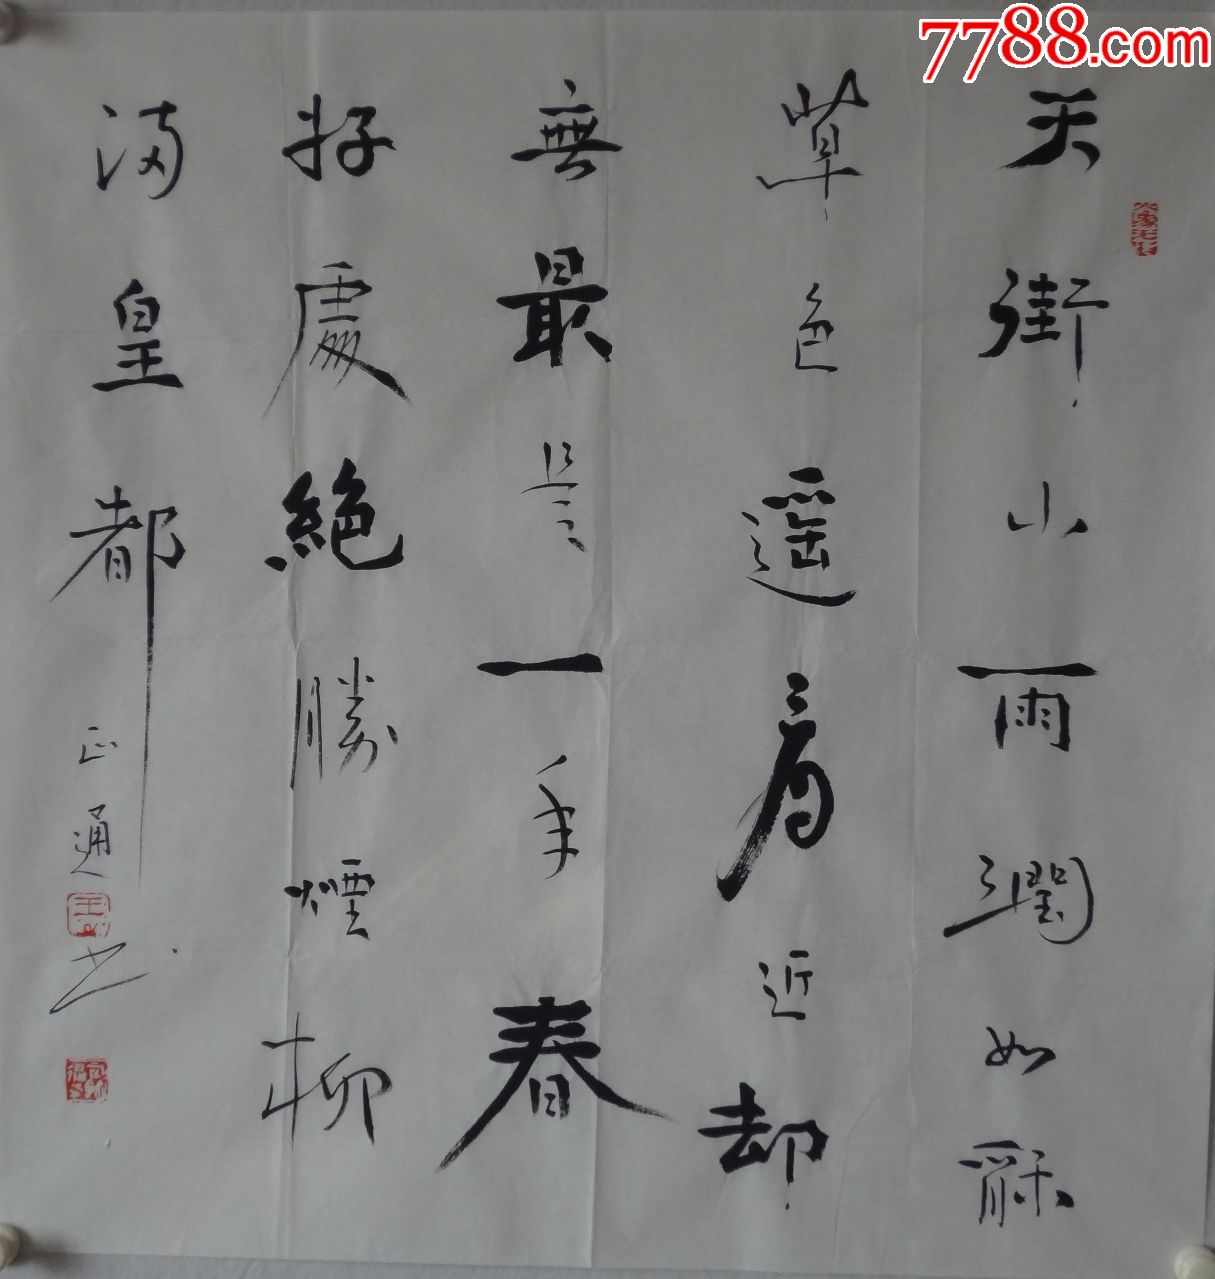 7788.com
天街小雨潤如酥
草色遥看近却
無最是一年春
好處絕勝煙柳
满皇都
正通书